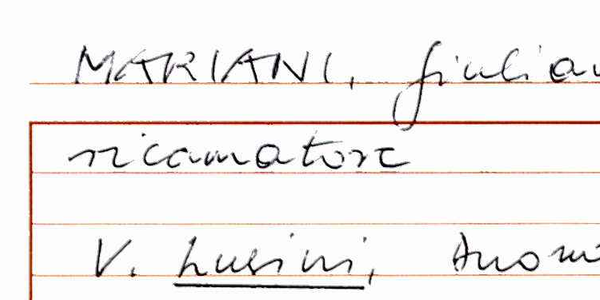 MARIANI, Giulian
ricamatore
V. Lusini,